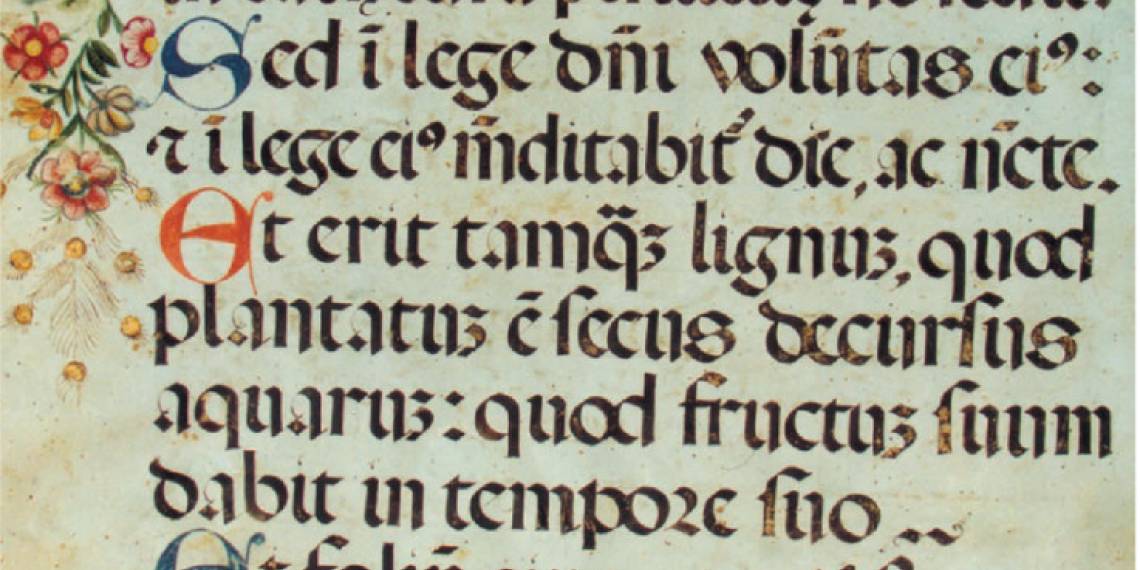 Sed ī lege dn̄i volūtas ei⁹:
⁊ ī lege ei⁹ m̄ditabit᷑ die, ac n̄cte.
Et erit tamq̄ꝫ lignuꝫ, quod
plantatuꝫ ē ſecus decurſus
aquaruꝫ: quod fructuꝫ ſuum
dabit in tempoꝛe ſuo